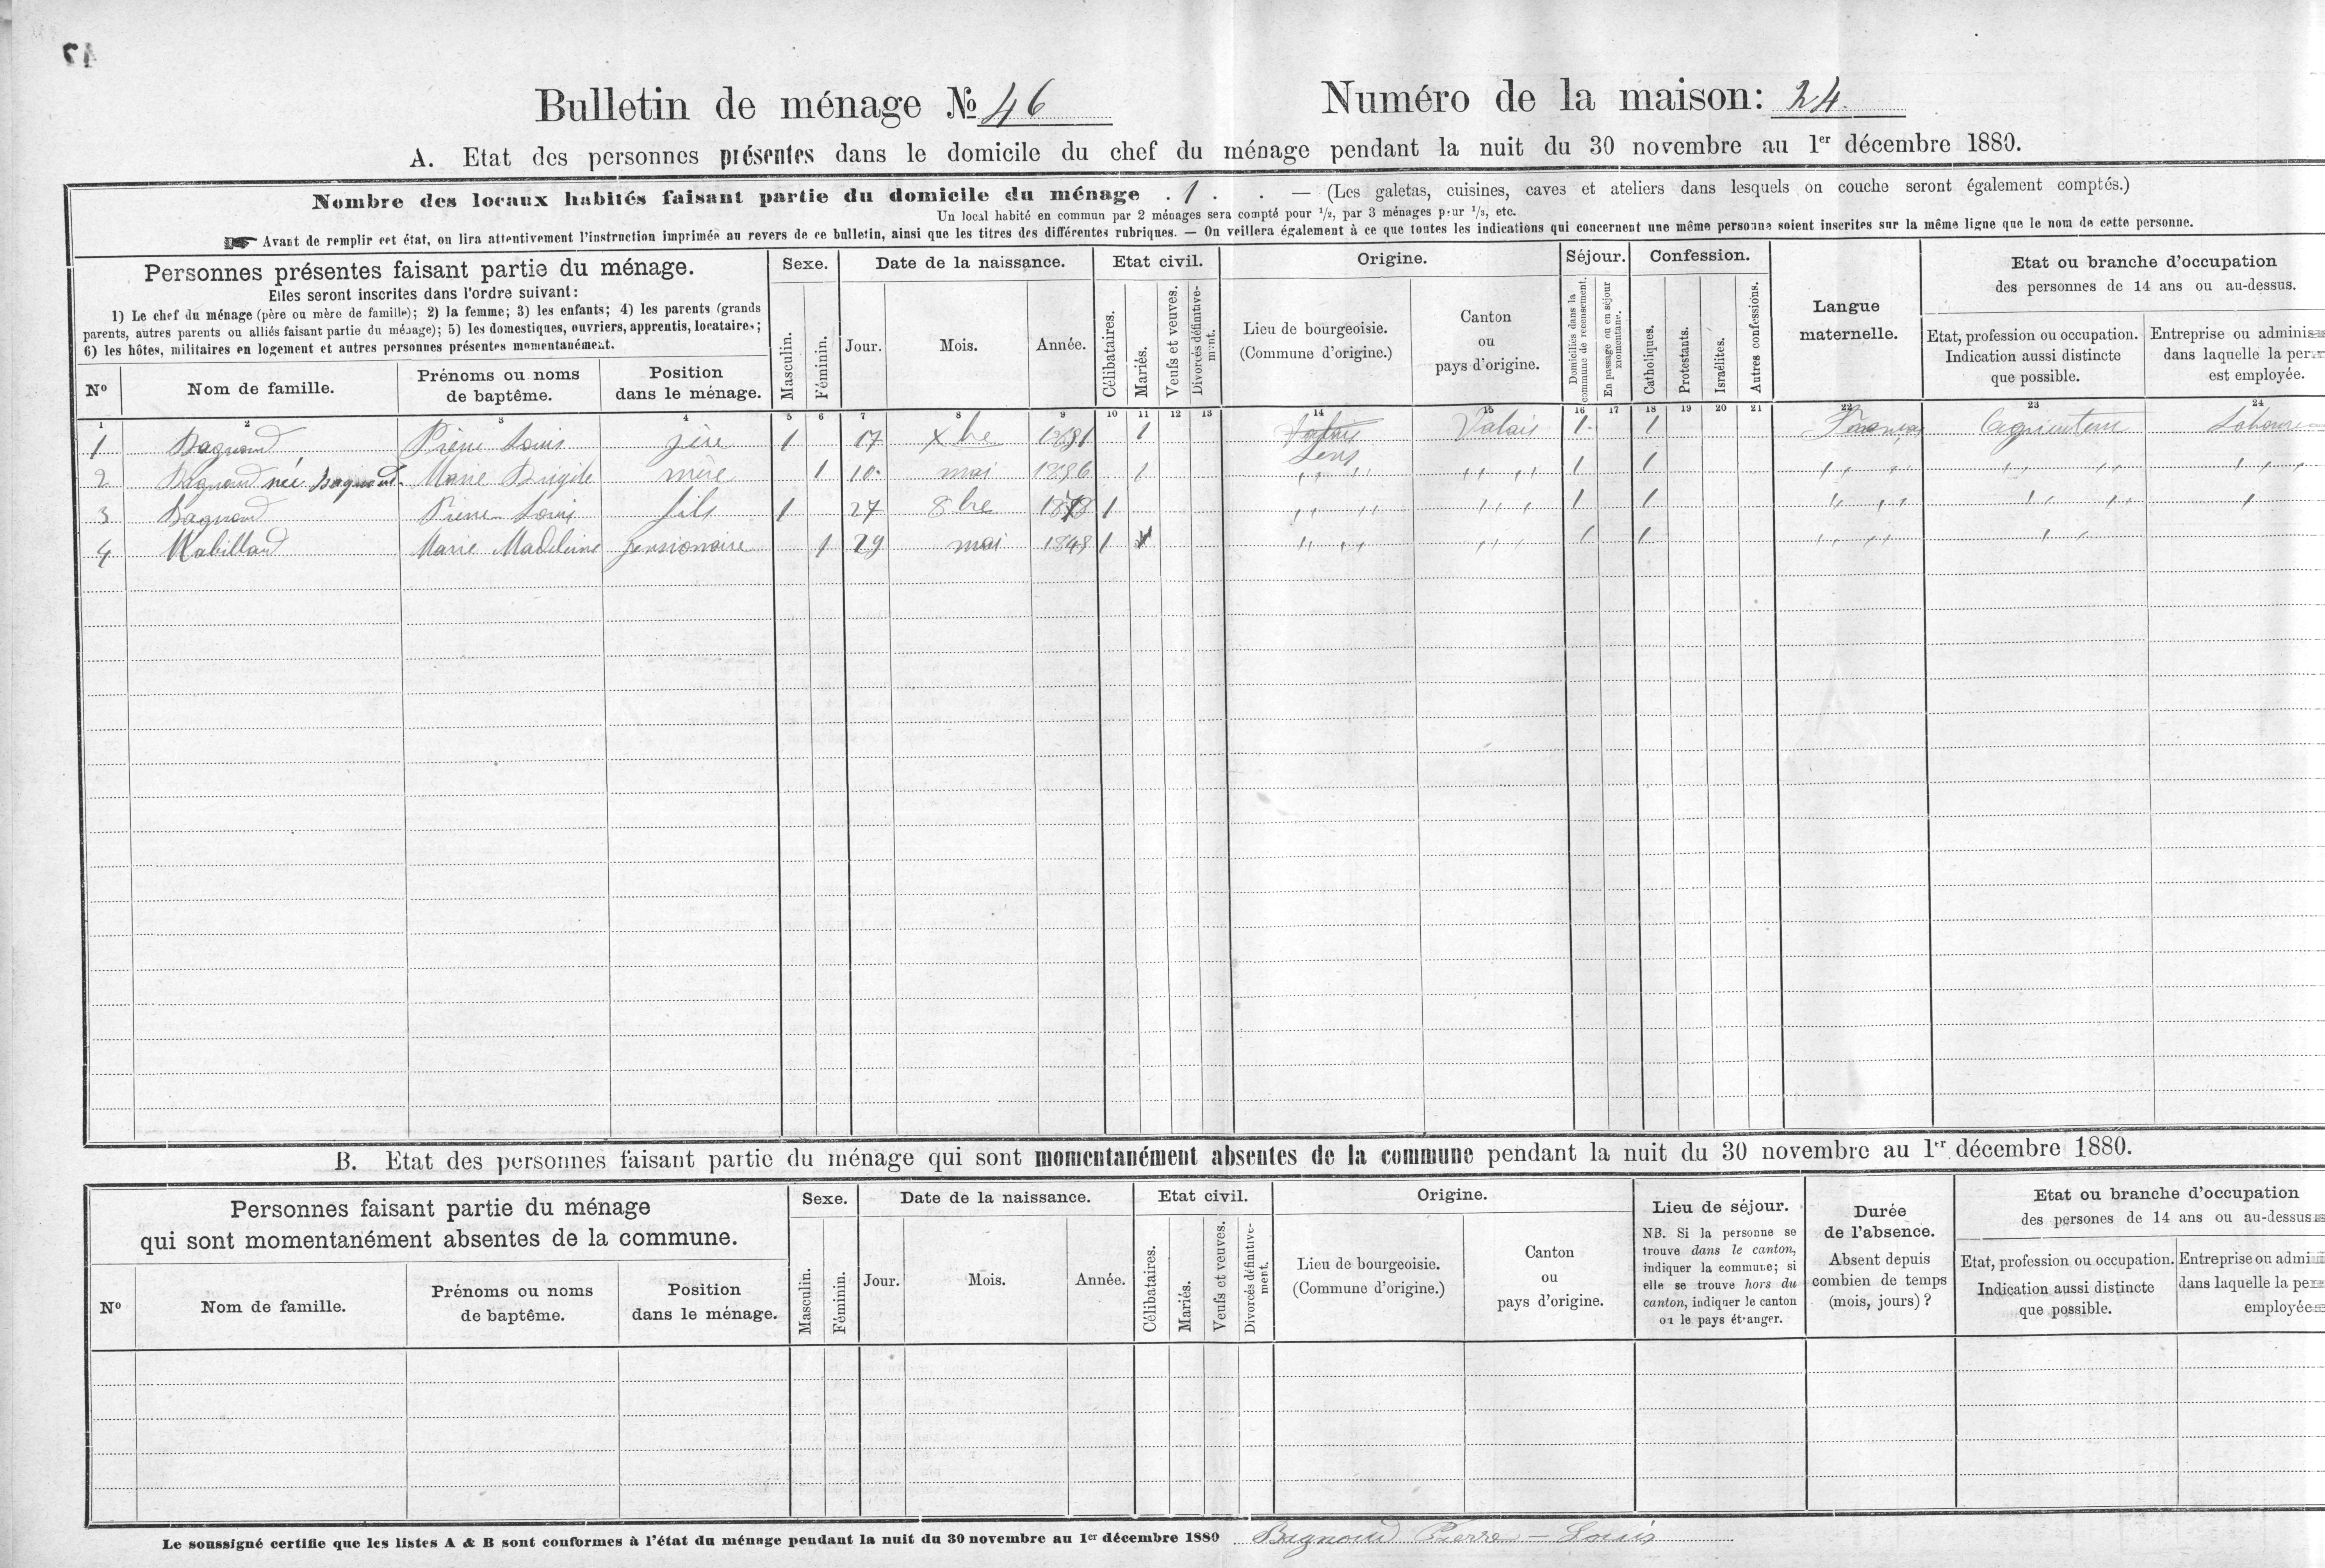 Bulletin de ménage № 46
Numéro de la maison: 24
A. Etat des personnes présentes dans le domicile du chef du ménage pendant la nuit du 30 novembre au 1er décembre 1880.
Nombre des locaux habités faisant partie du domicile du ménage . 1 . . — (Les galetas, cuisines, caves et ateliers dans lesquels on couche seront également comptés.)
Un local habité en commun par 2 ménages sera compté pour 1/2, par 3 ménages pour 1/3, etc.
☛ Avant de remplir cet état, on lira attentivement l'instruction imprimée au revers de ce bulletin, ainsi que les titres des différentes rubriques. — On veillera également à ce que toutes les indications qui concernent une même personne soient inscrites sur la même ligne que le nom de cette personne.
Personnes présentes faisant partie du ménage.
Elles seront inscrites dans l'ordre suivant:
1) Le chef du ménage (père ou mère de famille); 2) la femme; 3) les enfants; 4) les parents (grands
parents, autres parents ou alliés faisant partie du ménage); 5) les domestiques, ouvriers, apprentis, locataires;
6) les hôtes, militaires en logement et autres personnes présentes momentanément.
Nº
Nom de famille.
Prénoms ou noms
de baptême.
Position
dans le ménage.
Sexe.
Masculin.
Féminin.
Date de la naissance.
Jour.
Mois.
Année.
Etat civil.
Célibataires.
Mariés.
Veufs et veuves.
Divorcés définitive-
ment.
Origine.
Lieu de bourgeoisie.
(Commune d'origine.)
Canton
ou
pays d'origine.
Séjour.
Domiciliés dans la
commune de recensement.
En passage ou en séjour
momentané.
Confession.
Catholiques.
Protestants.
Israélites.
Autres confessions.
Langue
maternelle.
Etat ou branche d'occupation
des personnes de 14 ans ou au-dessus.
Etat, profession ou occupation.
Indication aussi distincte
que possible.
Entreprise ou adminis
dans laquelle la per
est employée.
1 2 3 4 5 6 7 8 9 10 11 12 13 14 15 16 17 18 19 20 21 22 23 24
1 Bagnoud Pierre Louis père 1 17 xbre 1 Valais Lens Valais 1 1 Français Agriculteur
2 Bagnoud née Bagnoud Marie Brigite mère 1 10 mai 1 " " " " 1 1 " " " " " "
3 Bagnoud Pierre Louis fils 1 27 8bre 1878 1 " " " " 1 1 " " " " "
4 Robillard Marie Madeleine pensionaire 1 29 mai 1848 1 " " " " 1 1 " " " "
B. Etat des personnes faisant partie du ménage qui sont momentanément absentes de la commune pendant la nuit du 30 novembre au 1er décembre 1880.
Personnes faisant partie du ménage
qui sont momentanément absentes de la commune.
Nº
Nom de famille.
Prénoms ou noms
de baptême.
Position
dans le ménage.
Sexe.
Masculin.
Féminin.
Date de la naissance.
Jour.
Mois.
Année.
Etat civil.
Célibataires.
Mariés.
Veufs et veuves.
Divorcés définitive-
ment.
Origine.
Lieu de bourgeoisie.
(Commune d'origine.)
Canton
ou
pays d'origine.
Lieu de séjour.
NB. Si la personne se
trouve dans le canton,
indiquer la commune; si
elle se trouve hors du
canton, indiquer le canton
ou le pays étranger.
Durée
de l'absence.
Absent depuis
combien de temps
(mois, jours)?
Etat ou branche d'occupation
des persones de 14 ans ou au-dessus
Etat, profession ou occupation.
Indication aussi distincte
que possible.
Entreprise ou admi
dans laquelle la pe
employée
Le soussigné certifie que les listes A & B sont conformes à l'état du ménage pendant la nuit du 30 novembre au 1er décembre 1880 Bagnoud Pierre-Louis